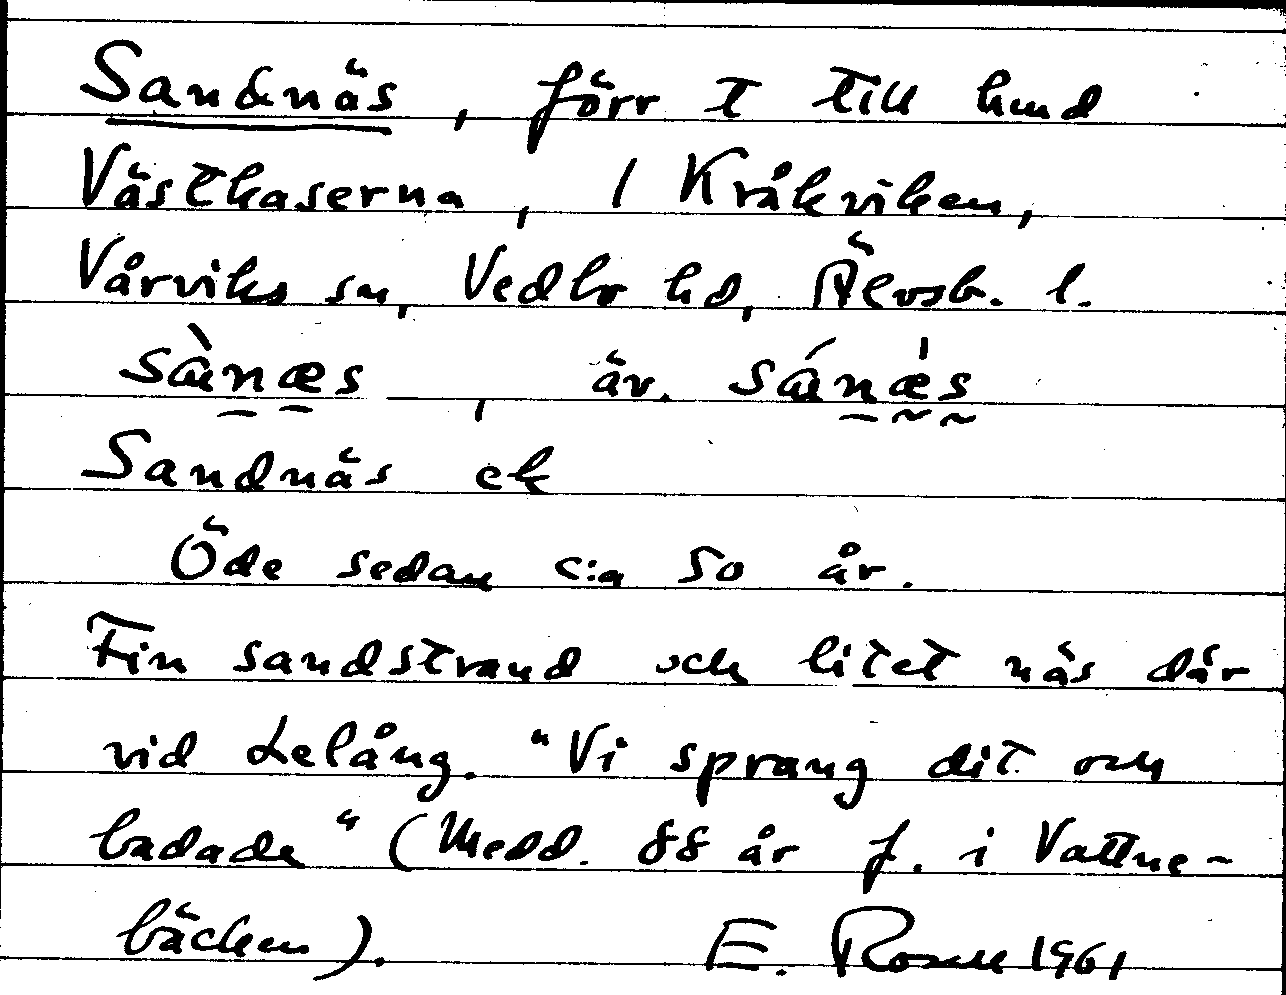 Sandnäs, förr t till hmd
Västkaserna, 1 Kråkviken,
Vårviks sn, Vedbo hd, Älvsb. l.
sànæs, äv. sánæ̍s
Sandnäs ek
Öde sedan c:a 50 år.
Fin sandstrand och litet näs där
vid Lelång. "Vi sprang dit och
badade" (Medd. 88 år f. i Vattne-
bäcken). E. Rosell 1961